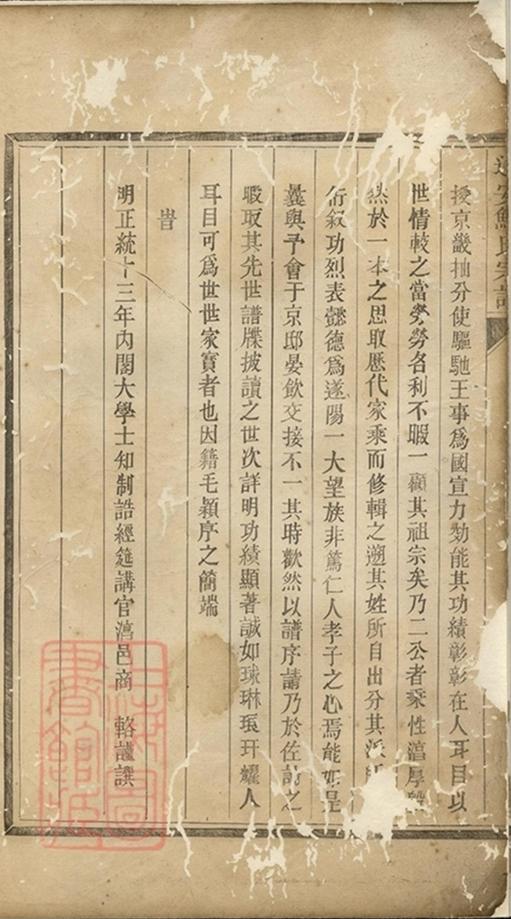 授京畿抽分使驅馳王事爲國宣力効能其功績彰彰在人耳目以
世情較之當勞勞名利不暇一顧其祖宗矣乃二公者秉性湻厚
然於一本之思取歷代家乘而修輯之遡其姓所自出分其派
衍叙功烈表懿德爲遂陽一大望族非篤仁人孝子之心焉能如是
曩與予會于京邸晏飲交接不一其時歡然以譜序請乃於佐
暇取其先世譜牒披讀之世次詳明功績顯著誠如球琳琅玕耀人
耳目可爲世世家寳者也因籍毛穎序之簡端
旹
明正統十三年內閣大學士知制誥經筵講官湻邑商 輅謹譔
書館